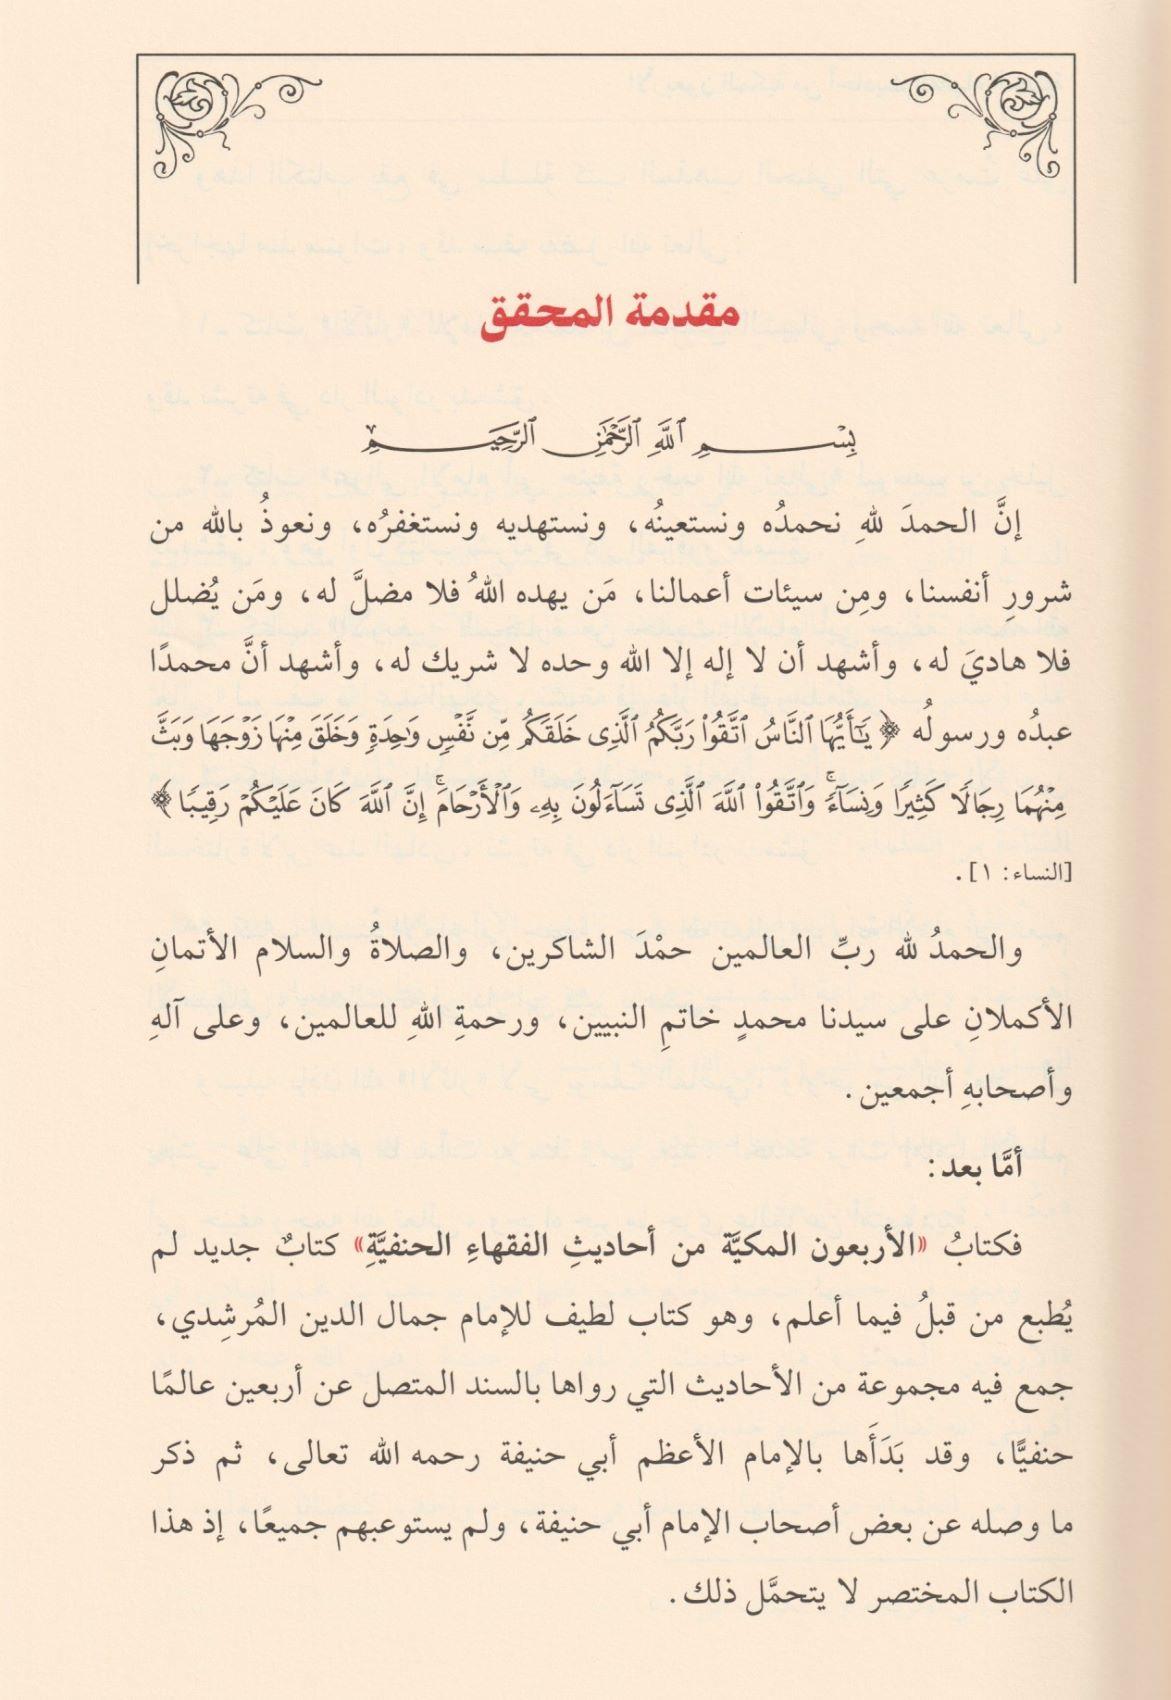 مقدمة المحقق
بِسْمِ ٱللَّهِ ٱلرَّحْمَٰنِ ٱلرَّحِيمِ
إنَّ الحمدَ للهِ نحمدُه ونستعينُه، ونستهديه ونستغفرُه، ونعوذُ بالله من
شرورِ أنفسنا، ومِن سيئات أعمالنا، مَن يهده اللهُ فلا مضلَّ له، ومَن يُضلل
فلا هاديَ له، وأشهد أن لا إله إلا الله وحده لا شريك له، وأشهد أنَّ محمدًا
عبدُه ورسولُه ﴿ يَٰٓأَيُّهَا ٱلنَّاسُ ٱتَّقُوا۟ رَبَّكُمُ ٱلَّذِى خَلَقَكُم مِّن نَّفْسٍ وَٰحِدَةٍ وَخَلَقَ مِنْهَا زَوْجَهَا وَبَثَّ
مِنْهُمَا رِجَالًا كَثِيرًا وَنِسَآءً ۚ وَٱتَّقُوا۟ ٱللَّهَ ٱلَّذِى تَسَآءَلُونَ بِهِۦ وَٱلْأَرْحَامَ ۚ إِنَّ ٱللَّهَ كَانَ عَلَيْكُمْ رَقِيبًا ﴾
[النساء: ١].
والحمدُ لله ربِّ العالمين حمْدَ الشاكرين، والصلاةُ والسلام الأتمانِ
الأكملانِ على سيدنا محمدٍ خاتمِ النبيين، ورحمةِ اللهِ للعالمين، وعلى آلهِ
وأصحابهِ أجمعين.
أمَّا بعد:
فكتابُ «الأربعون المكيَّة من أحاديثِ الفقهاءِ الحنفيَّةِ» كتابٌ جديد لم
يُطبع من قبلُ فيما أعلم، وهو كتاب لطيف للإمام جمال الدين المُرشِدي،
جمع فيه مجموعة من الأحاديث التي رواها بالسند المتصل عن أربعين عالمًا
حنفيًّا، وقد بَدَأَها بالإمام الأعظم أبي حنيفة رحمه الله تعالى، ثم ذكر
ما وصله عن بعض أصحاب الإمام أبي حنيفة، ولم يستوعبهم جميعًا، إذ هذا
الكتاب المختصر لا يتحمَّل ذلك.